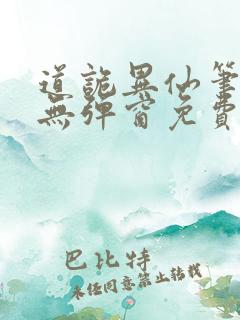 道詭異仙筆
無彈窗免費
巴比特
未經同意禁止转載